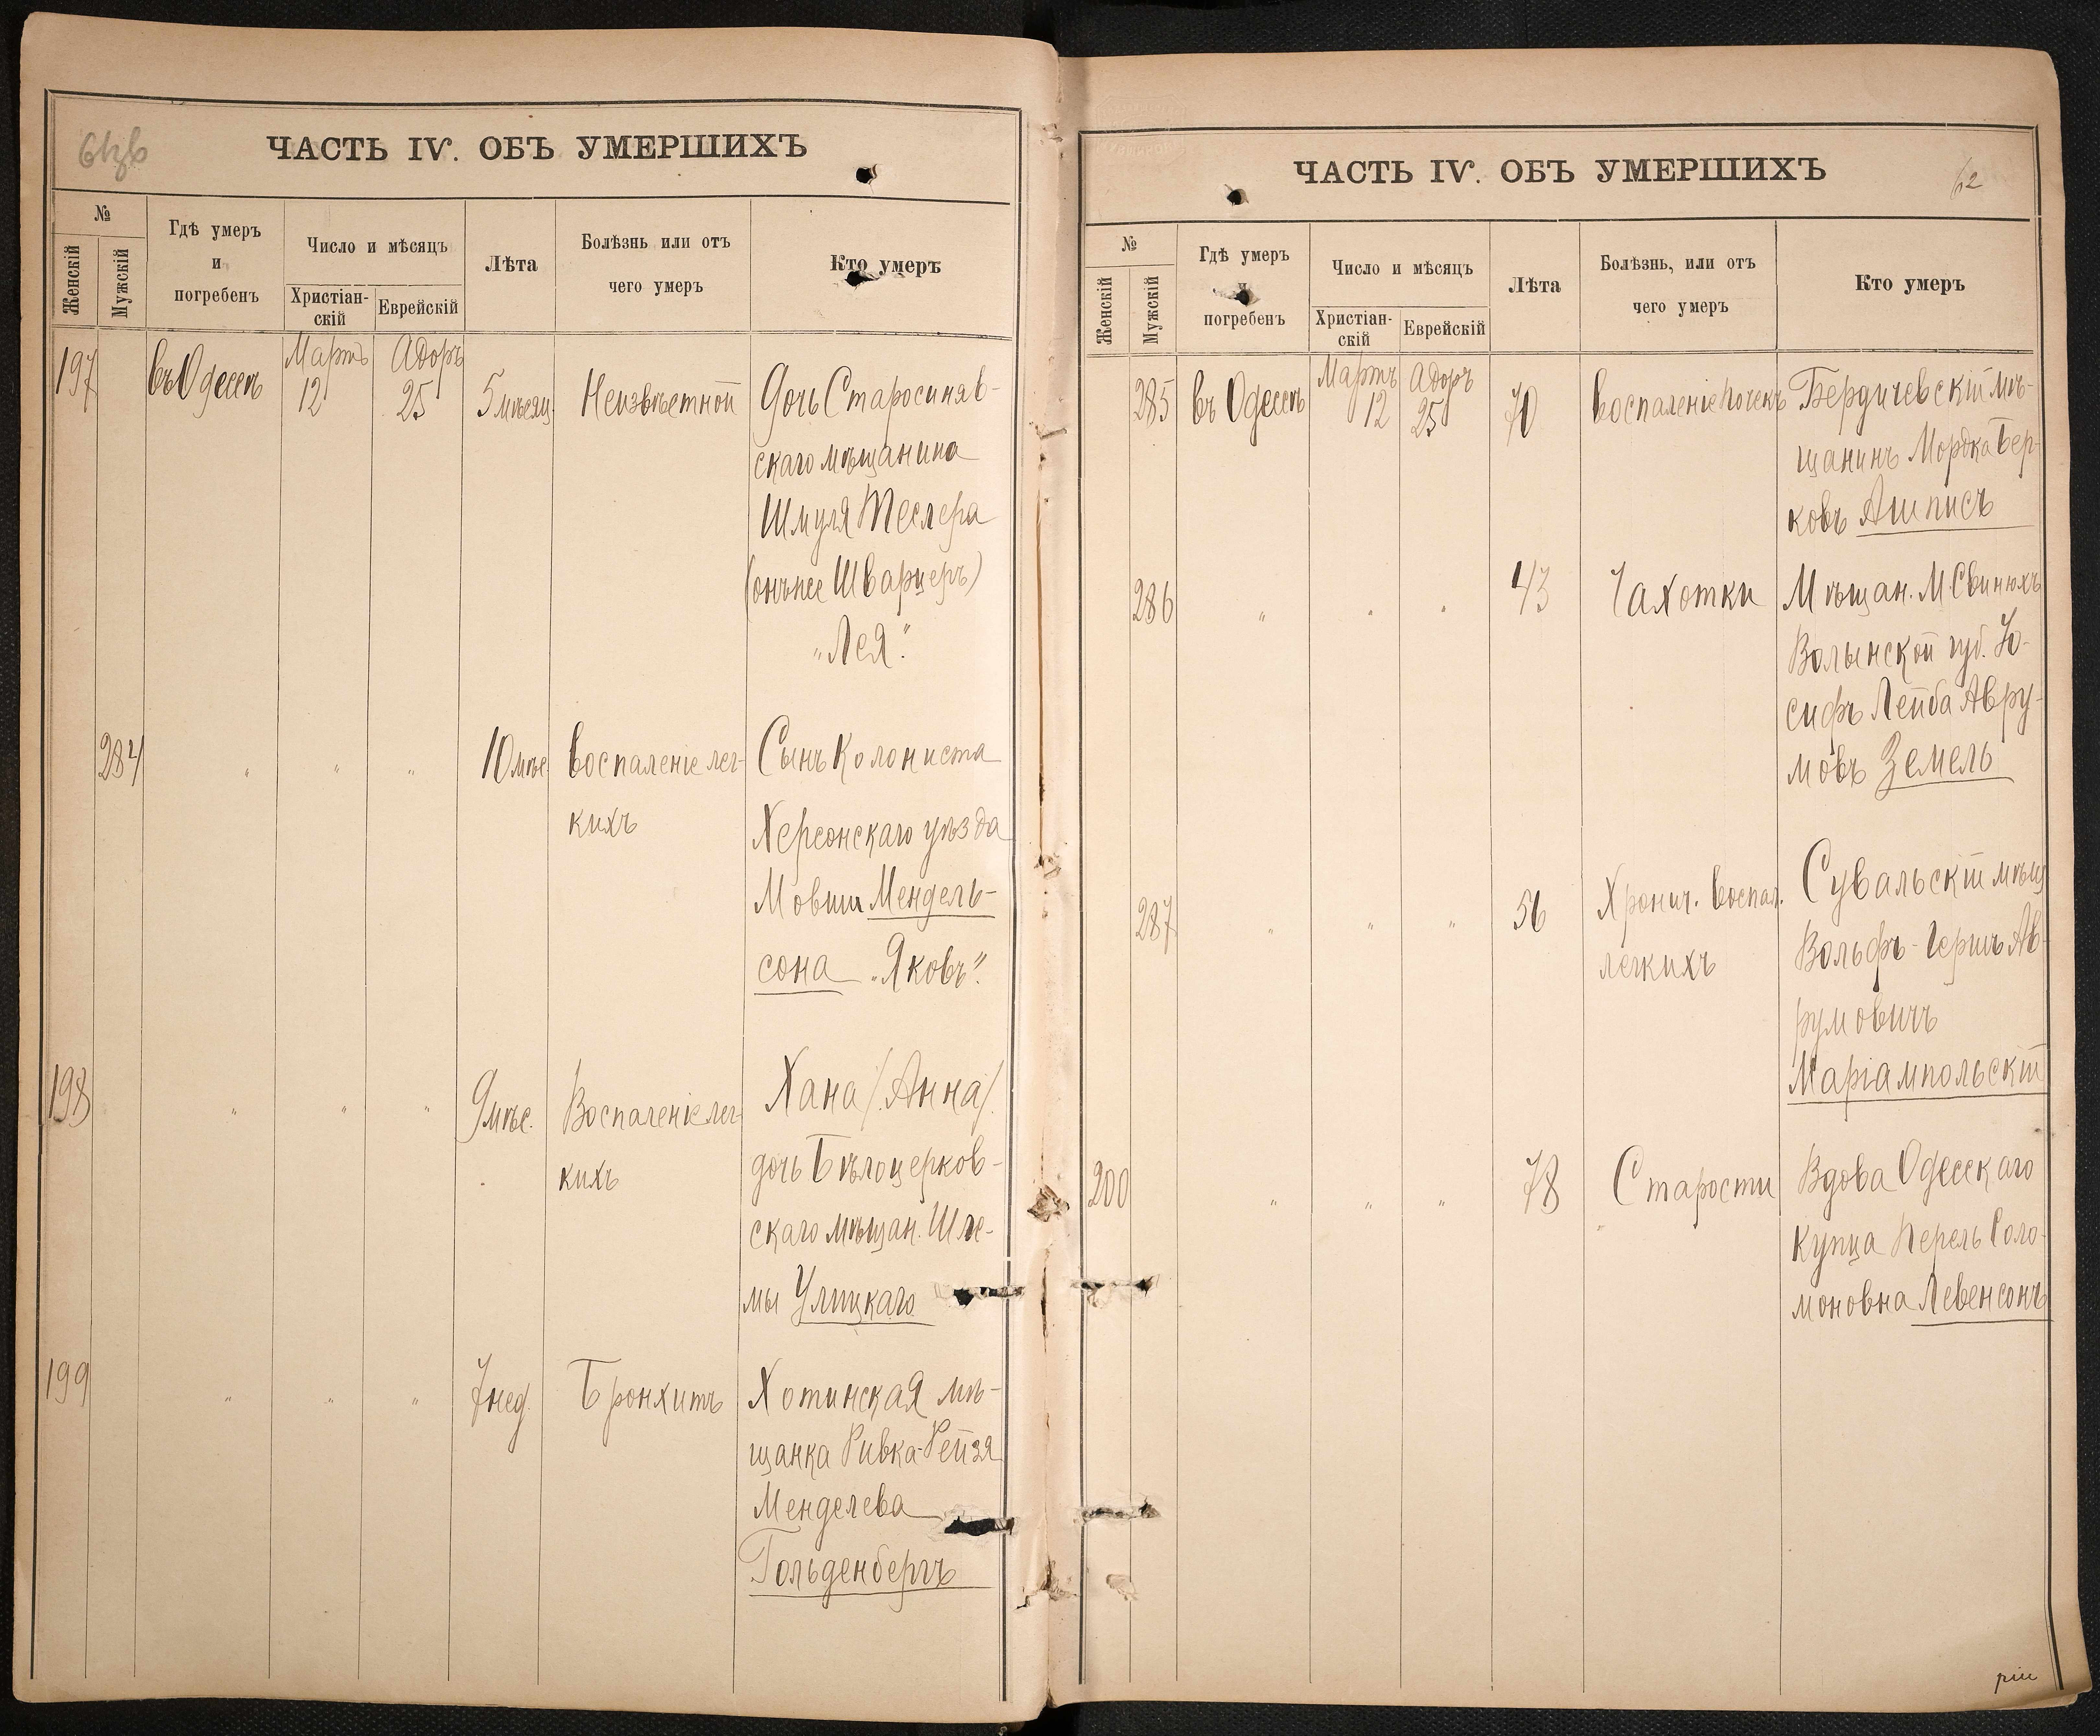 ЧАСТЬ IV. ОБЪ УМЕРШИХЪ
№
Женскій
Мужскій
Гдѣ умеръ
и
погребенъ
Число и мѣсяцъ
Христіан-
скій
Еврейскій
Лѣта
Болѣзнь или отъ
чего умеръ
Кто умеръ
197 въ Одессѣ Мартъ 12 Адоръ 25 5 мѣсяц. Неизвѣстной Дочь Старосиняв-
скаго мѣщанина
Шмуля Теслера
(онъ же Шварцеръ)
„Лея".
284 " " " 10 мѣс. Воспаленіе лег- Сынъ колониста
кихъ Херсонскаго уѣзда
Мовши Мендель-
сона „Яковъ".
198 " " " 9 мѣс. Воспаленіе лег- Хана /Анна/
кихъ дочь Бѣлоцерков-
скаго мѣщан. Шле-
мы Улицкаго
199 " " " 7 нед. Бронхитъ Хотинская мѣ-
щанка Ривка-Рейзя
Менделева
Гольденбергъ
ЧАСТЬ IV. ОБЪ УМЕРШИХЪ
62
№
Женскій
Мужскій
Гдѣ умеръ
и
погребенъ
Число и мѣсяцъ
Христіан-
скій
Еврейскій
Лѣта
Болѣзнь, или отъ
чего умеръ
Кто умеръ
285 въ Одессѣ Мартъ 12 Адоръ 25 70 Воспаленіе почекъ Бердичевскій мѣ-
щанинъ Мордка Бер-
ковъ Ашписъ
286 " " " 43 Чахотки Мѣщан. М. Свинюхъ
Волынской губ. Іо-
сифъ Лейба Авру-
мовъ Земель
287 " " " 56 Хронич. воспал. Сувальскій мѣщ
легкихъ Вольфъ-Гершъ Ав-
румовичъ
Маріампольскій
200 " " " 78 Старости Вдова Одесскаго
купца Перель Соло-
моновна Левенсонъ
ріи